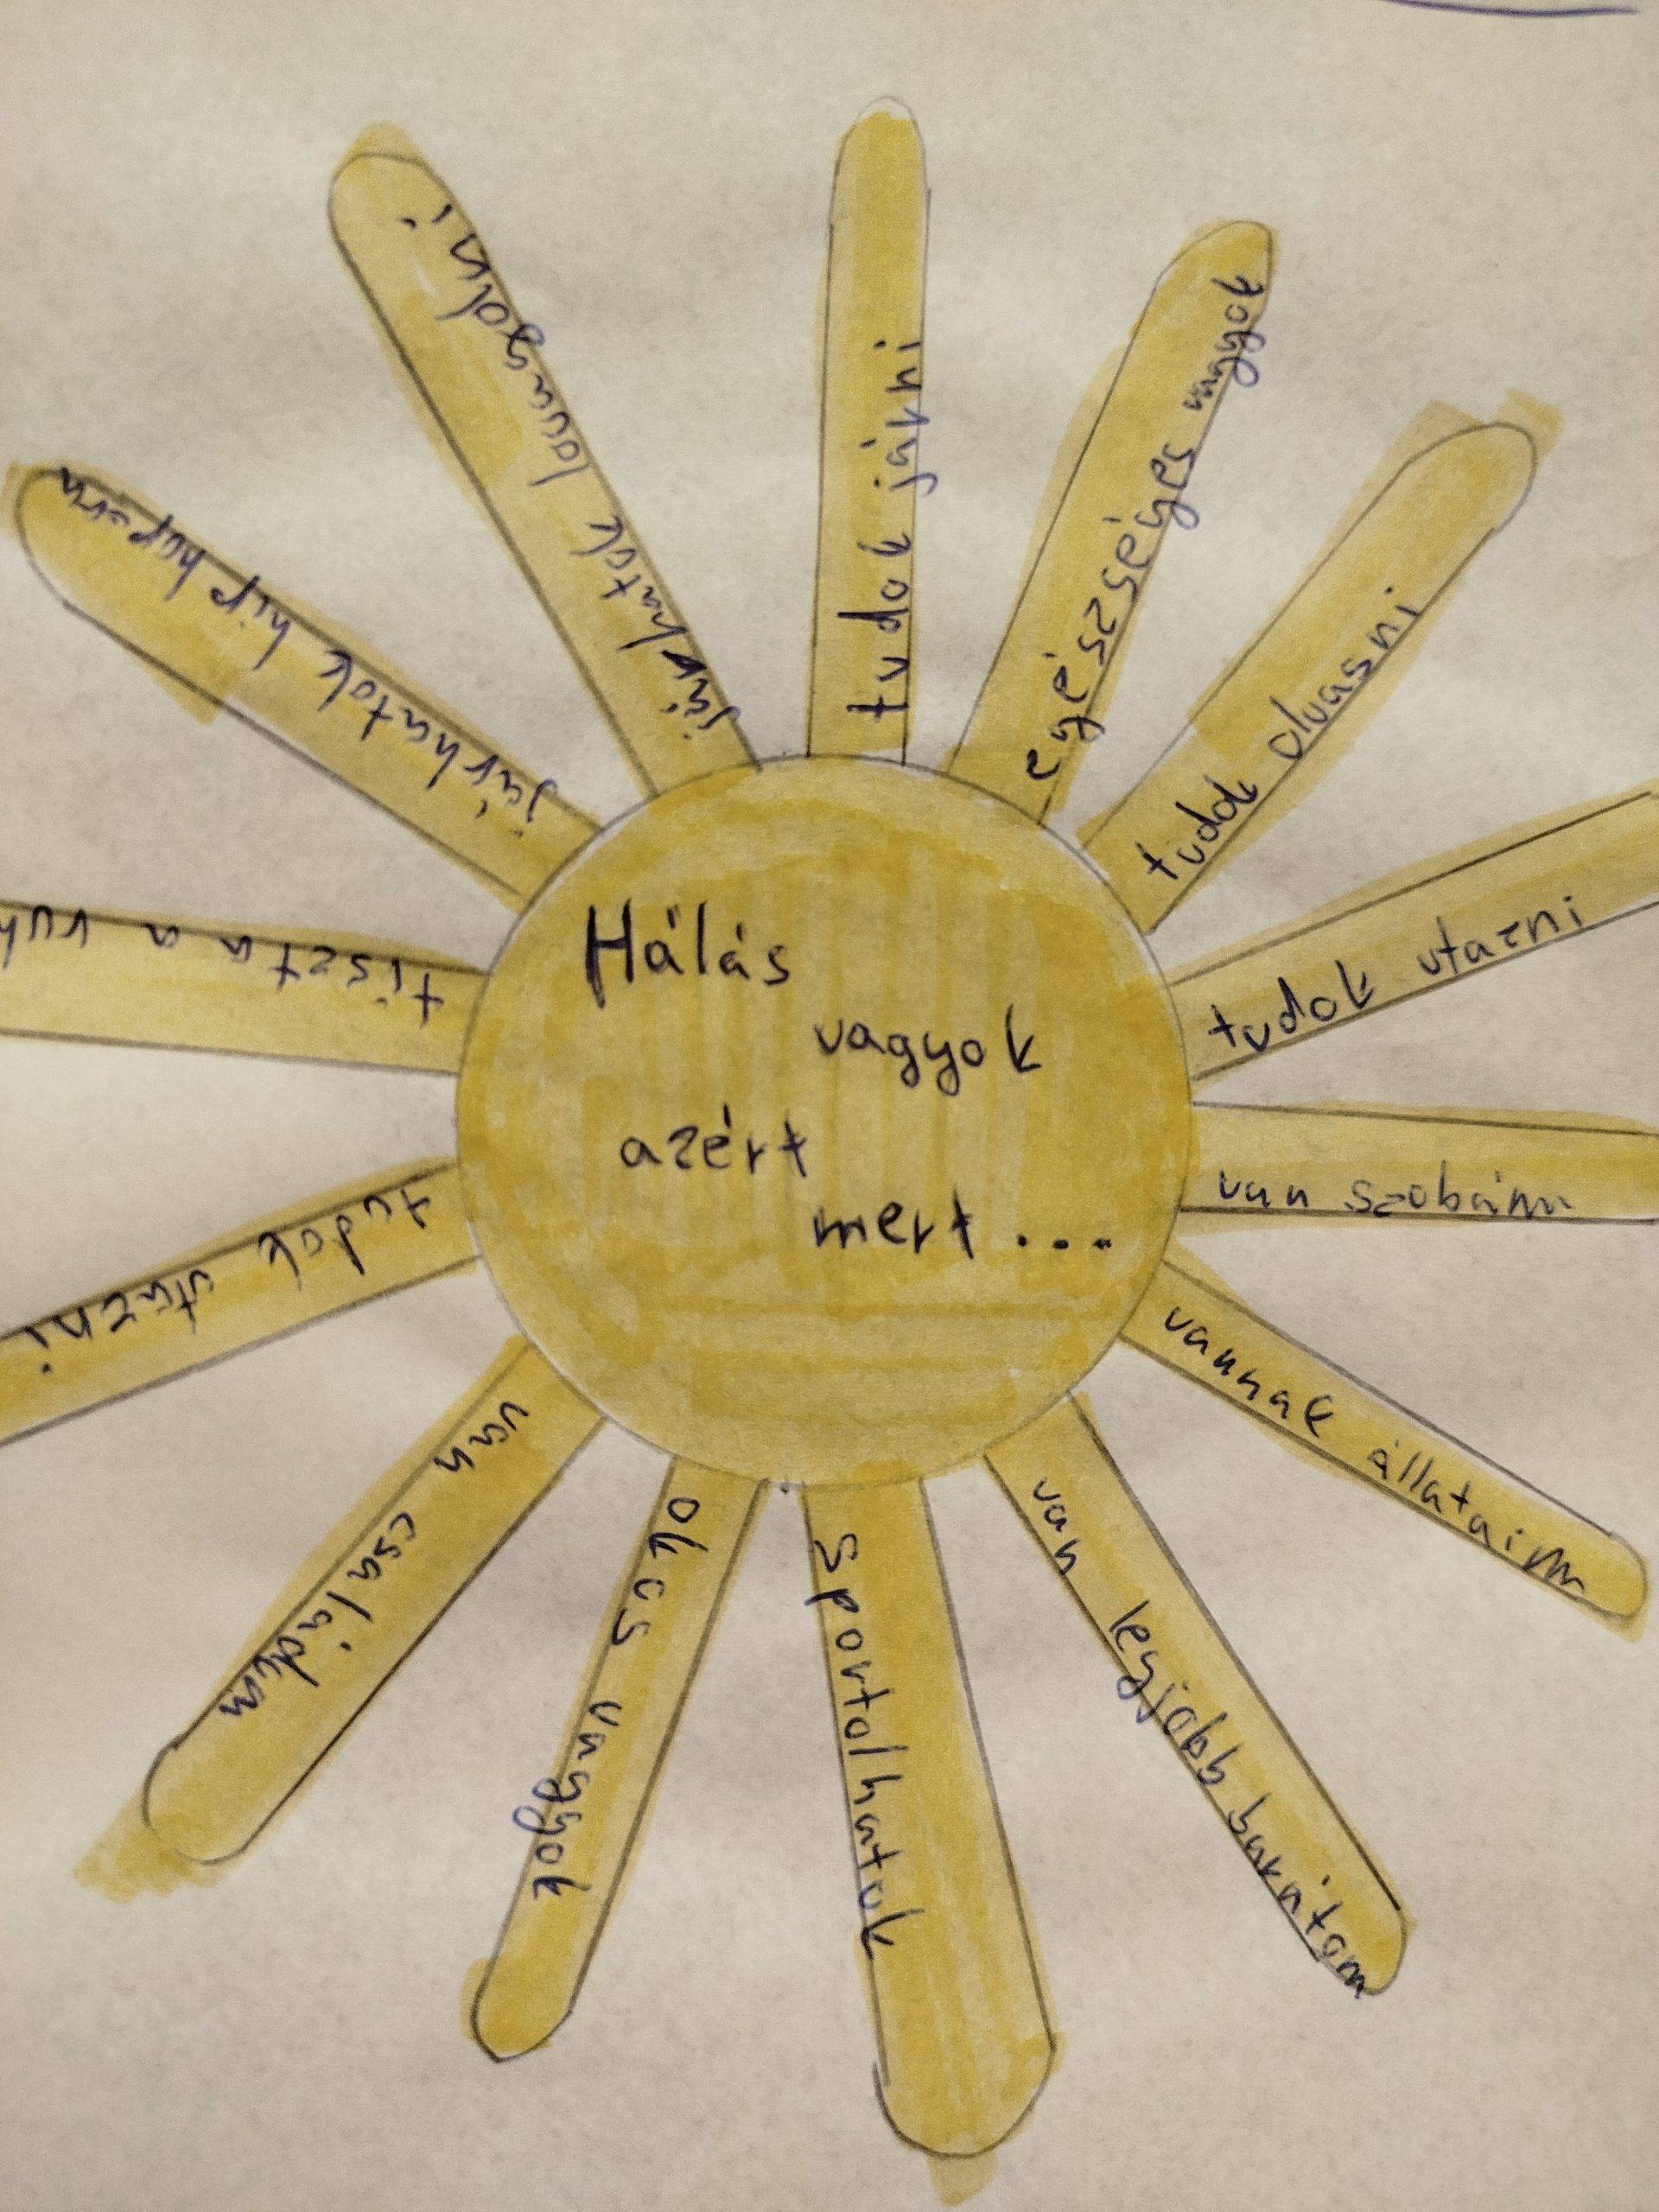 Hálás
vagyok
azért
mert...
tudok járni
egészséges vagyok
tudok olvasni
tudok utazni
van szobám
vannak állataim
van legjobb barátom
sportolhatok
okos vagyok
van családom
tudok utazni
tiszta a ruh
járhatok hip hopra
járhatok lovagolni